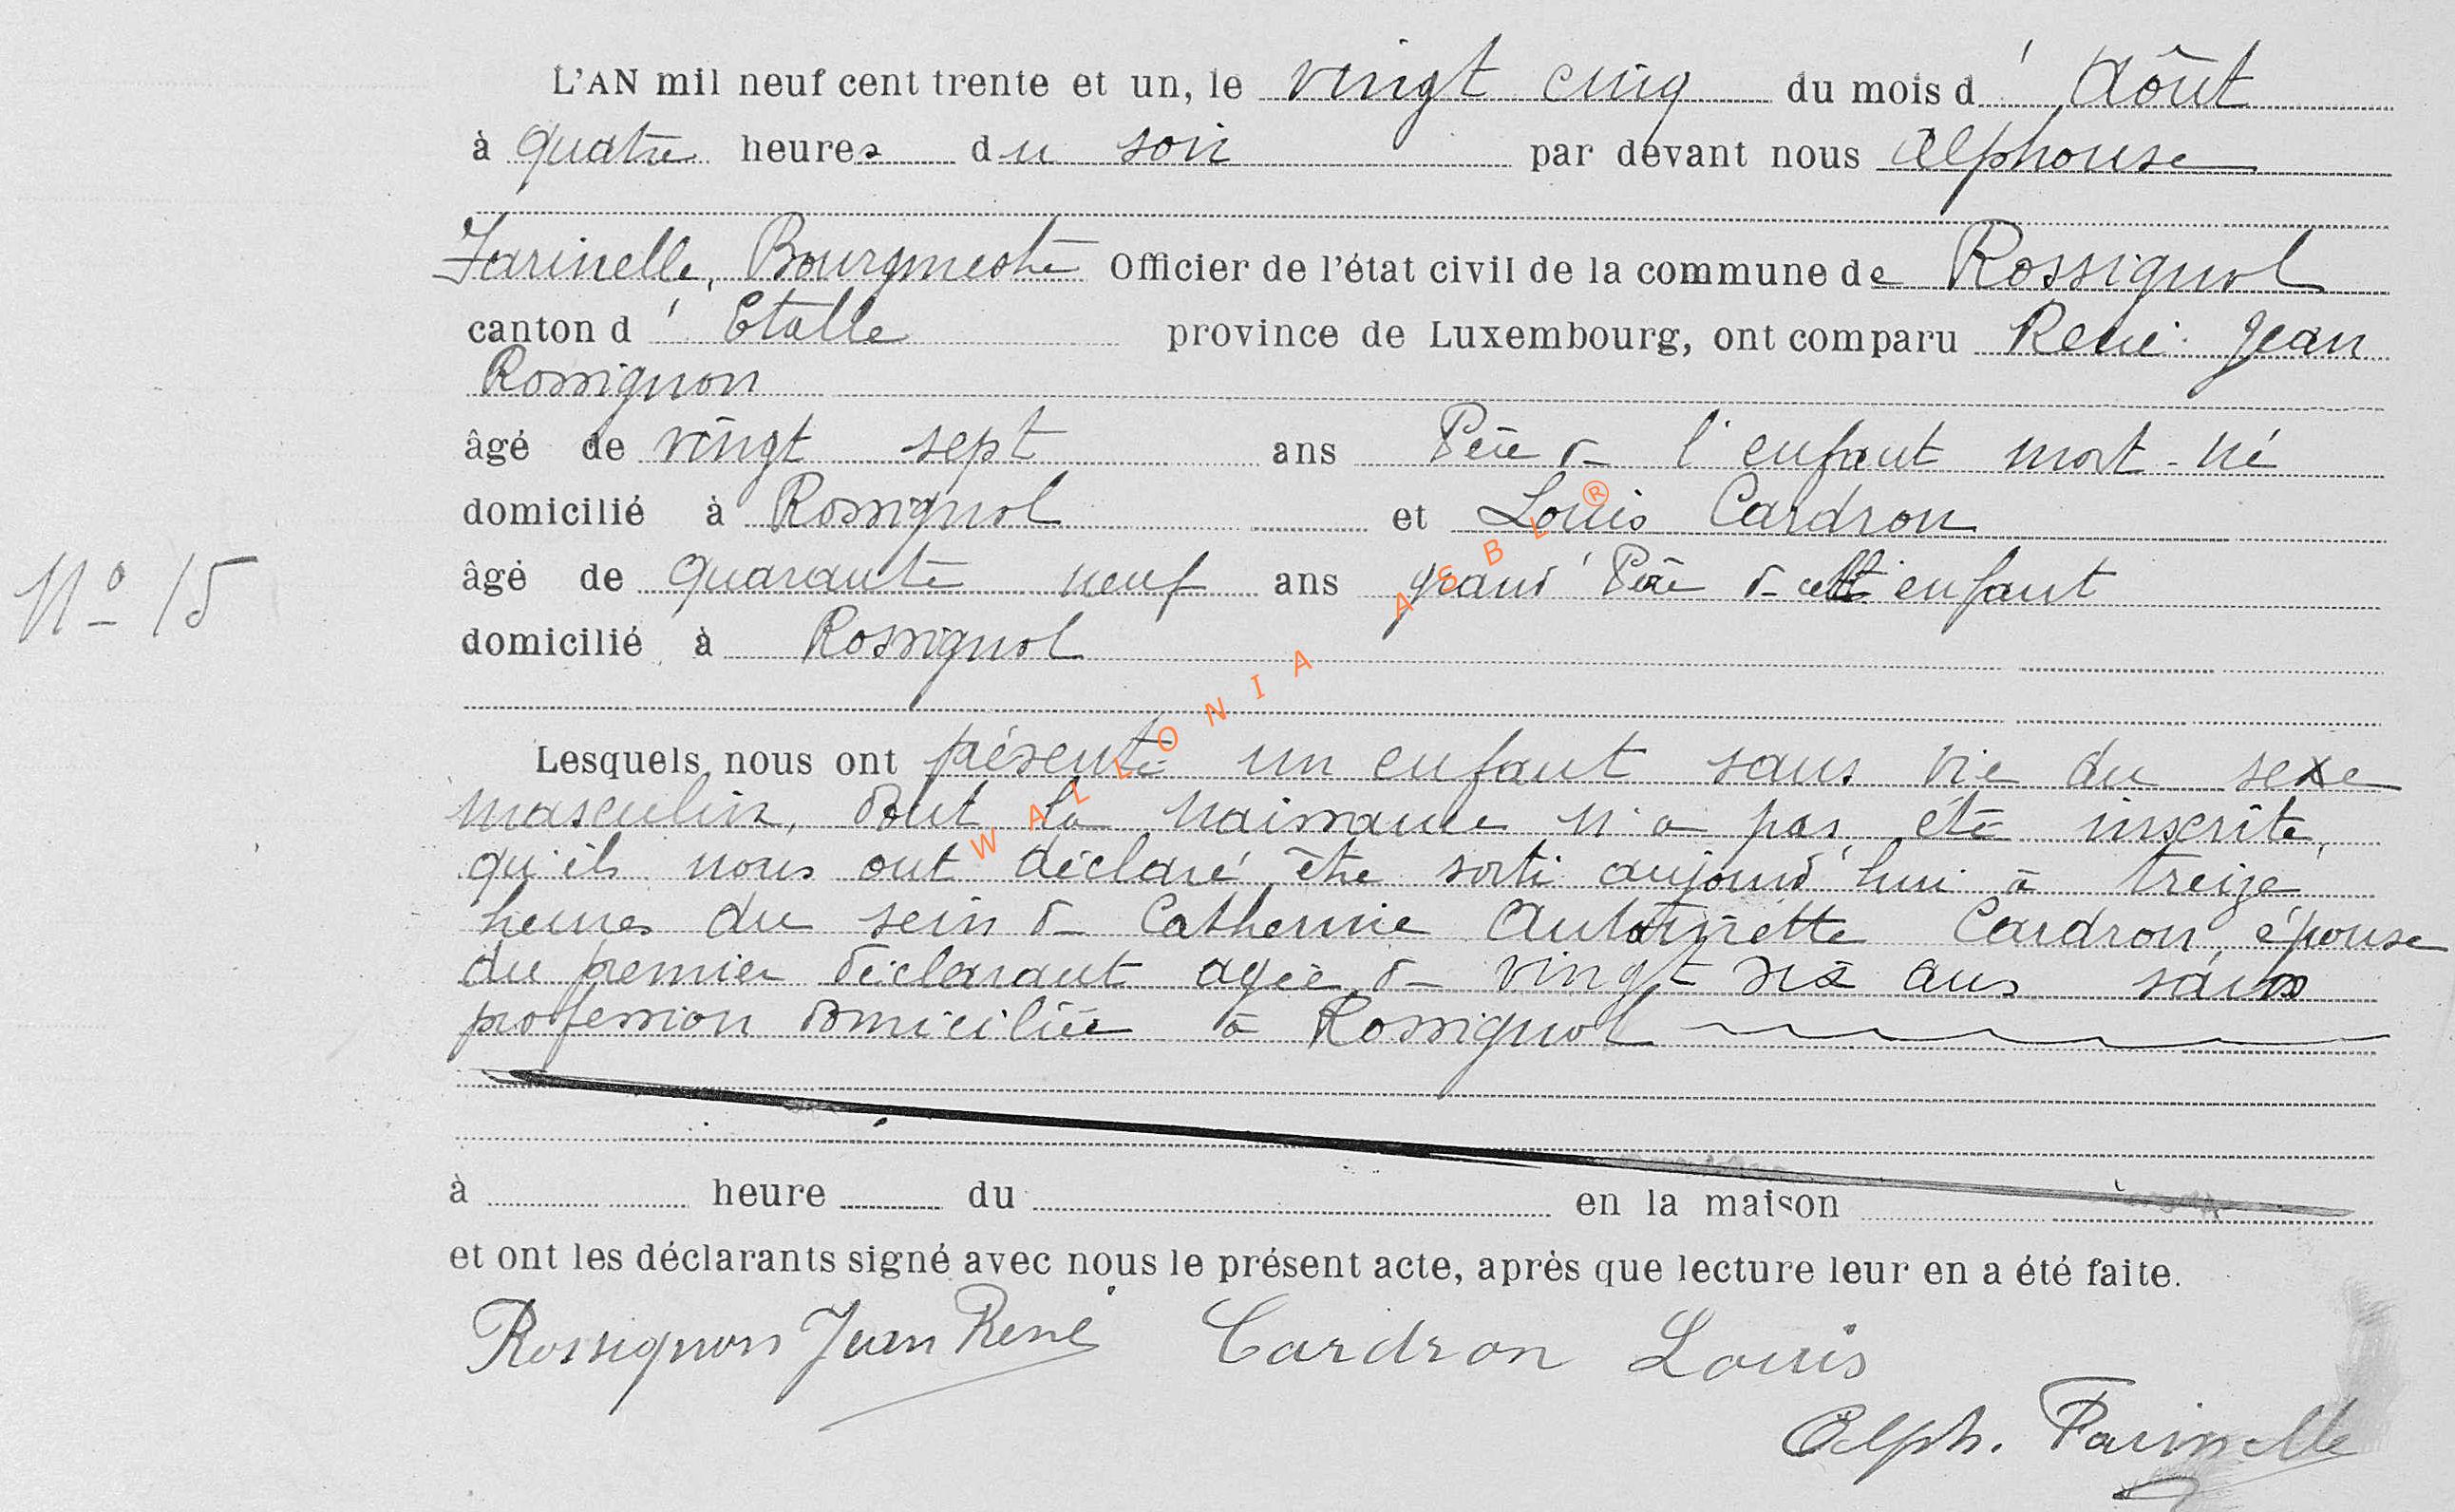 L'AN mil neuf cent trente et un, le vingt cinq du mois d' Aôut
à quatre heures du soir par devant nous Alphonse
Farinelle, Bourgmestre Officier de l'état civil de la commune de Rossignol
canton d' Etalle province de Luxembourg, ont comparu René Jean
Rossignon
âgé de vingt sept ans Père de l'enfant mort-né
domicilié à Rossignol et Louis Cardron
N° 15
âgé de quarante neuf ans grand'Père de cett enfant
domicilié à Rossignol
Lesquels nous ont présenté un enfant sans vie du sexe
masculin, dont la naissance n'a pas été inscrite,
qu'ils nous ont déclaré être sorti aujourd'hui à treize
heures du sein de Catherine Antoinette Cardron, épouse
du premier déclarant agée de vingt six ans sans
profession domiciliée à Rossignol
à heure du en la maison
et ont les déclarants signé avec nous le présent acte, après que lecture leur en a été faite.
Rossignon Jean René Cardron Louis
Alph. Farinelle
WALLONIA ASBL ®